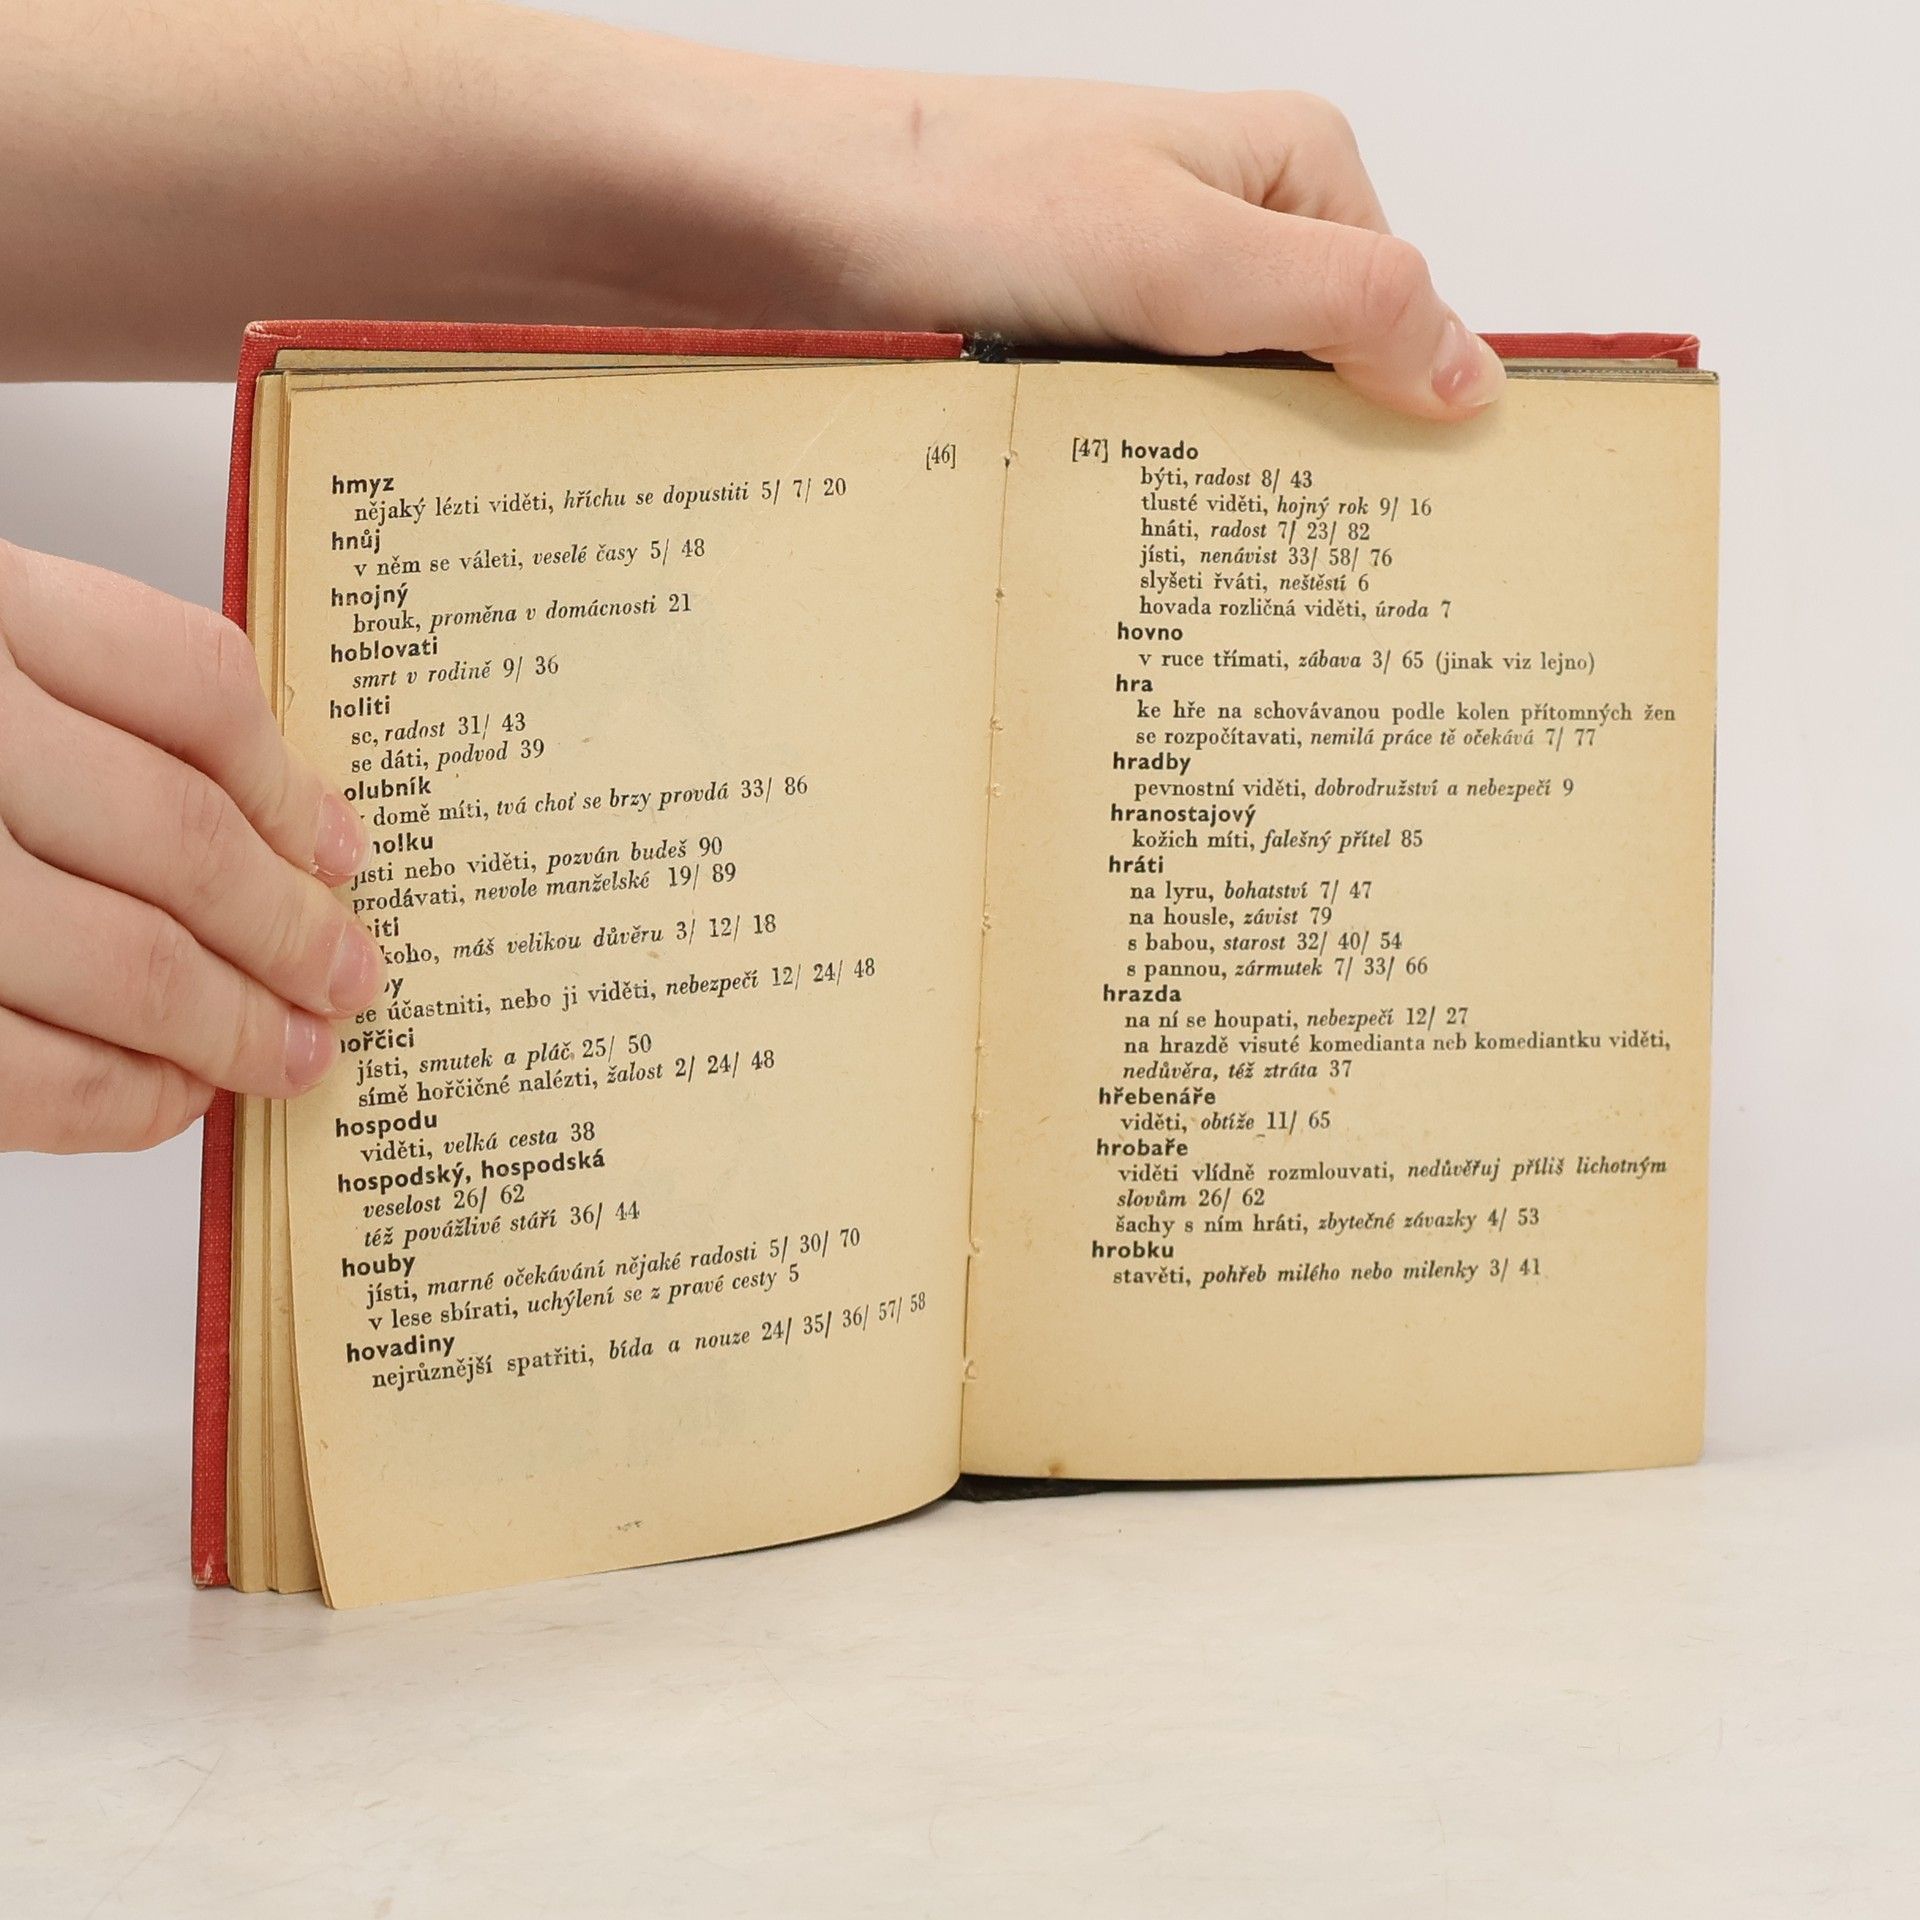 [46]
hmyz
nějaký lézti viděti, hříchu se dopustiti 5/ 7/ 20
hnůj
v něm se váleti, veselé časy 5/ 48
hnojný
brouk, proměna v domácnosti 21
hoblovati
smrt v rodině 9/ 36
holiti
se, radost 31/ 43
se dáti, podvod 39
olubník
domě míti, tvá choť se brzy provdá 33/ 86
jísti nebo viděti, pozván budeš 90
prodávati, nevole manželské 19/ 89
koho, máš velikou důvěru 3/ 12/ 18
se účastniti, nebo ji viděti, nebezpečí 12/ 24/ 48
hořčici
jísti, smutek a pláč 25/ 50
símě hořčičné nalézti, žalost 2/ 24/ 48
hospodu
viděti, velká cesta 38
hospodský, hospodská
veselost 26/ 62
též povážlivé stáří 36/ 44
houby
jísti, marné očekávání nějaké radosti 5/ 30/ 70
v lese sbírati, uchýlení se z pravé cesty 5
hovadiny
nejrůznější spatřiti, bída a nouze 24/ 35/ 36/ 57/ 58
[47] hovado
býti, radost 8/ 43
tlusté viděti, hojný rok 9/ 16
hnáti, radost 7/ 23/ 82
jísti, nenávist 33/ 58/ 76
slyšeti řváti, neštěstí 6
hovada rozličná viděti, úroda 7
hovno
v ruce třímati, zábava 3/ 65 (jinak viz lejno)
hra
ke hře na schovávanou podle kolen přítomných žen
se rozpočítavati, nemilá práce tě očekává 7/ 77
hradby
pevnostní viděti, dobrodružství a nebezpečí 9
hranostajový
kožich míti, falešný přítel 85
hráti
na lyru, bohatství 7/ 47
na housle, závist 79
s babou, starost 32/ 40/ 54
s pannou, zármutek 7/ 33/ 66
hrazda
na ní se houpati, nebezpečí 12/ 27
na hrazdě visuté komedianta neb komediantku viděti,
nedůvěra, též ztráta 37
hřebenáře
viděti, obtíže 11/ 65
hrobaře
viděti vlídně rozmlouvati, nedůvěřuj příliš lichotným
slovům 26/ 62
šachy s ním hráti, zbytečné závazky 4/ 53
hrobku
stavěti, pohřeb milého nebo milenky 3/ 41